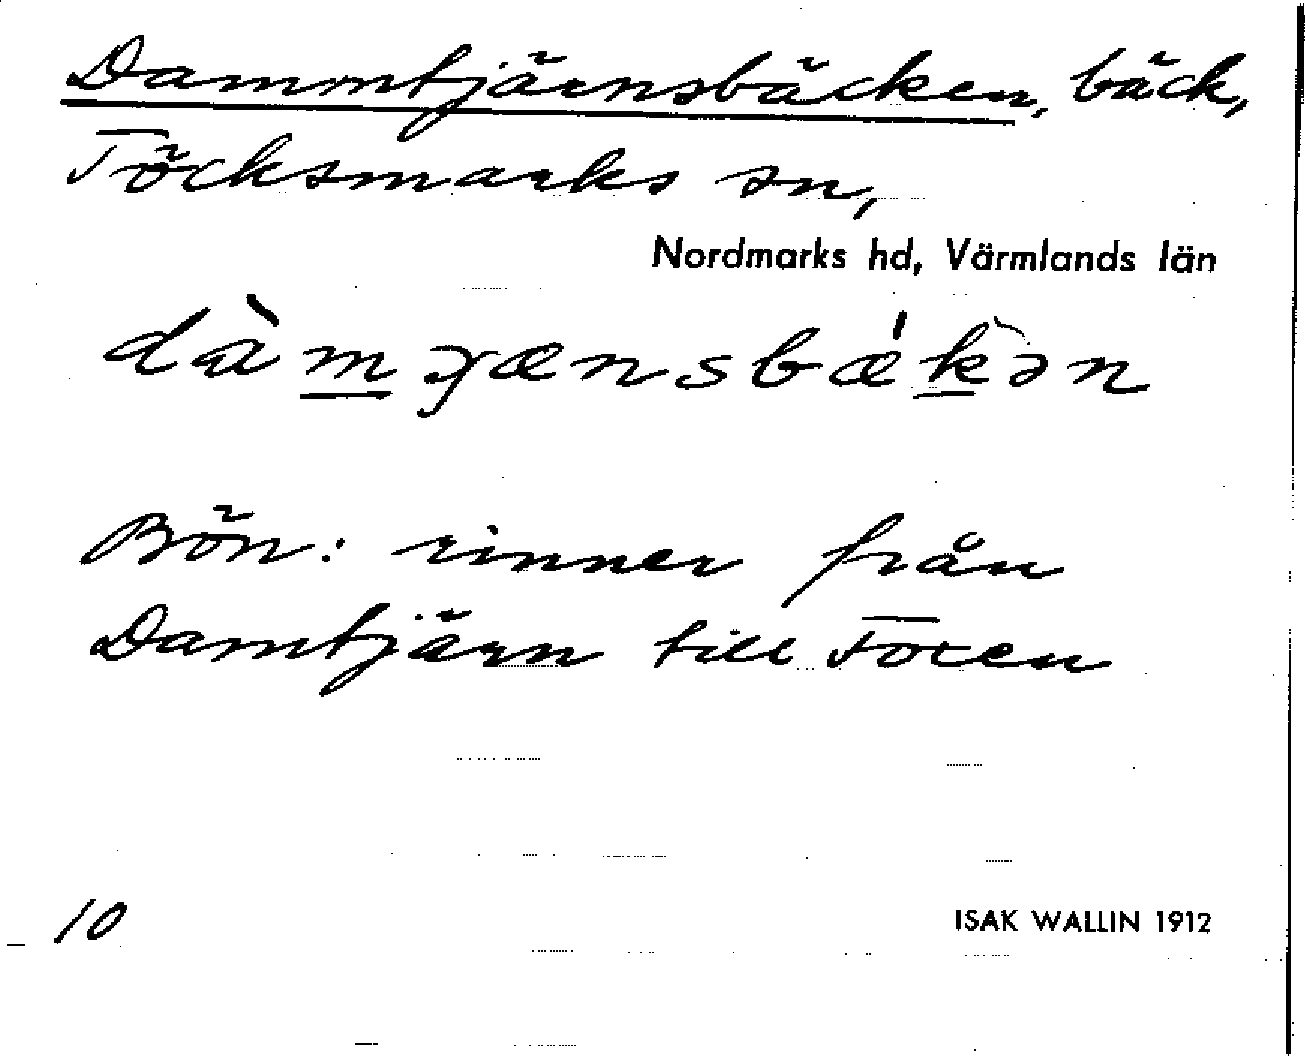 Dammtjärnsbäcken, bäck,
Töcksmarks sn,
Nordmarks hd, Värmlands län
Bön: rinner från
Damtjärn till Foxen
10
ISAK WALLIN 1912